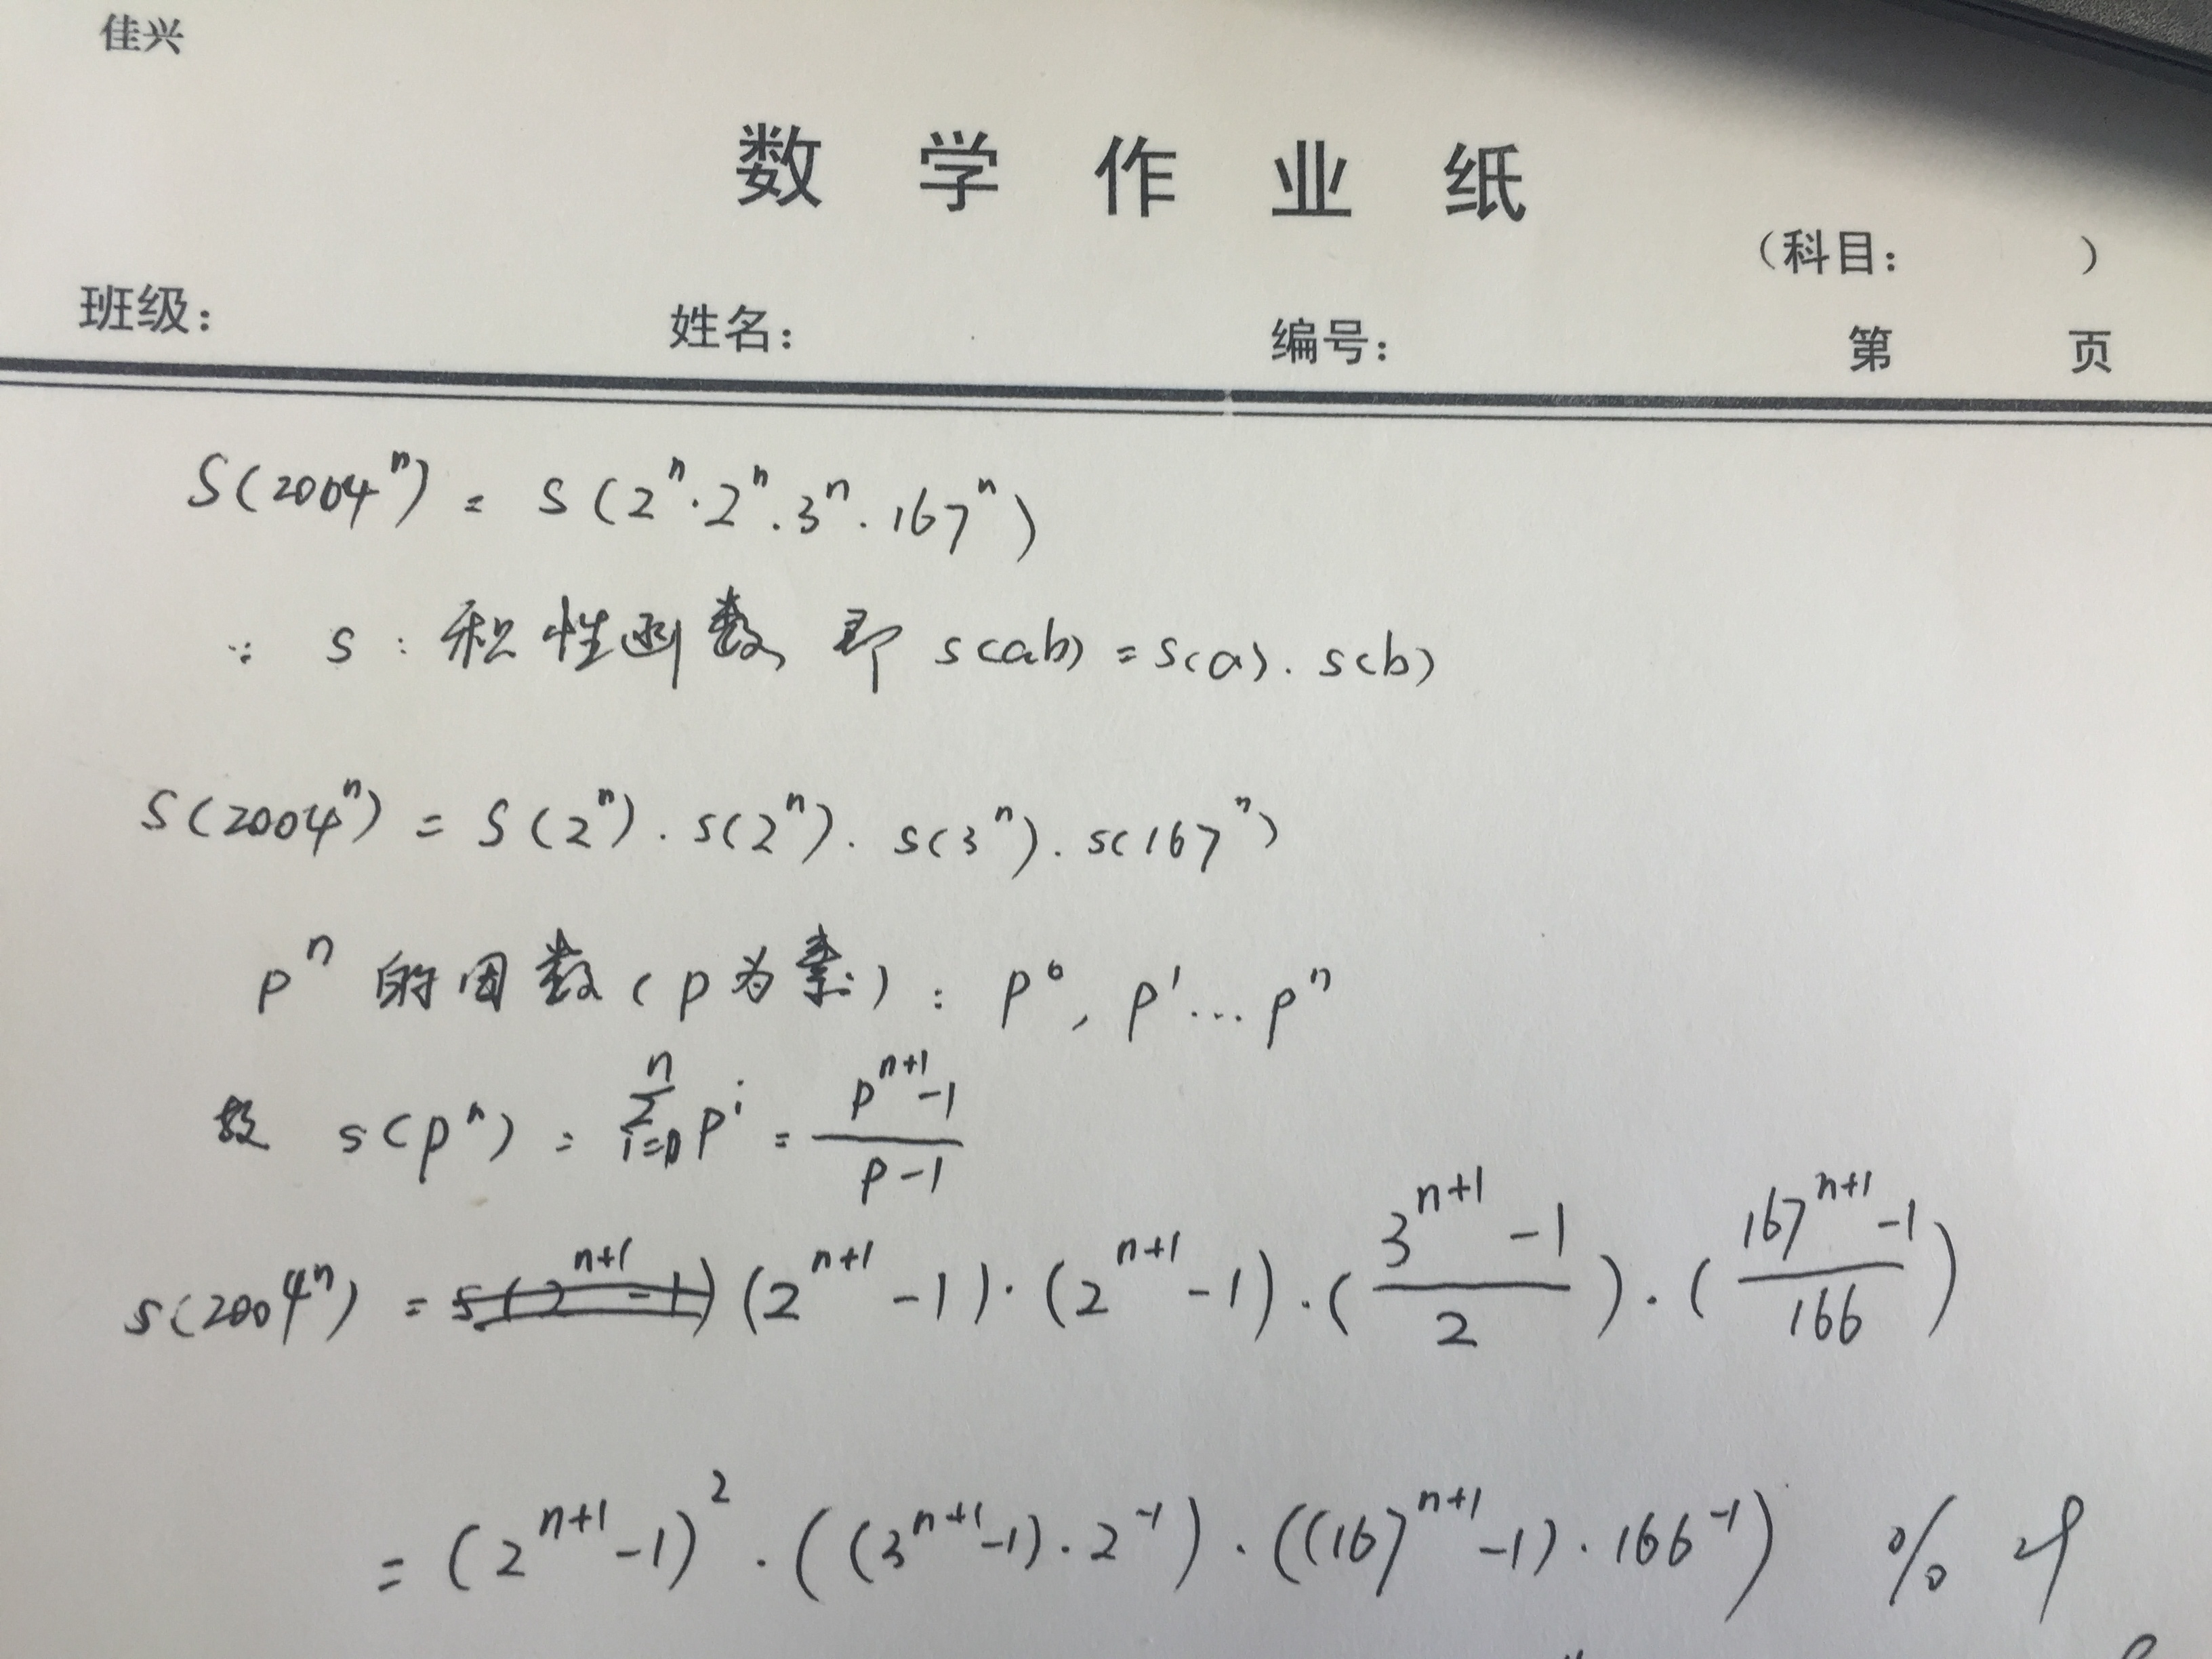 佳兴
数学作业纸
（科目： ）
班级： 姓名： 编号： 第 页
S(2004ⁿ) = S(2ⁿ·2ⁿ·3ⁿ·167ⁿ)
∵ S：积性函数 即 s(ab) = s(a)·s(b)
S(2004ⁿ) = S(2ⁿ)·s(2ⁿ)·s(3ⁿ)·s(167ⁿ)
pⁿ 的因数(p为素)：p⁰, p¹…pⁿ
故 s(pⁿ) = ∑ᵢ₌₀ⁿ pⁱ = (pⁿ⁺¹-1)/(p-1)
s(2004ⁿ) = (2ⁿ⁺¹-1)·(2ⁿ⁺¹-1)·((3ⁿ⁺¹-1)/2)·((167ⁿ⁺¹-1)/166)
= (2ⁿ⁺¹-1)²·((3ⁿ⁺¹-1)·2⁻¹)·((167ⁿ⁺¹-1)·166⁻¹) %